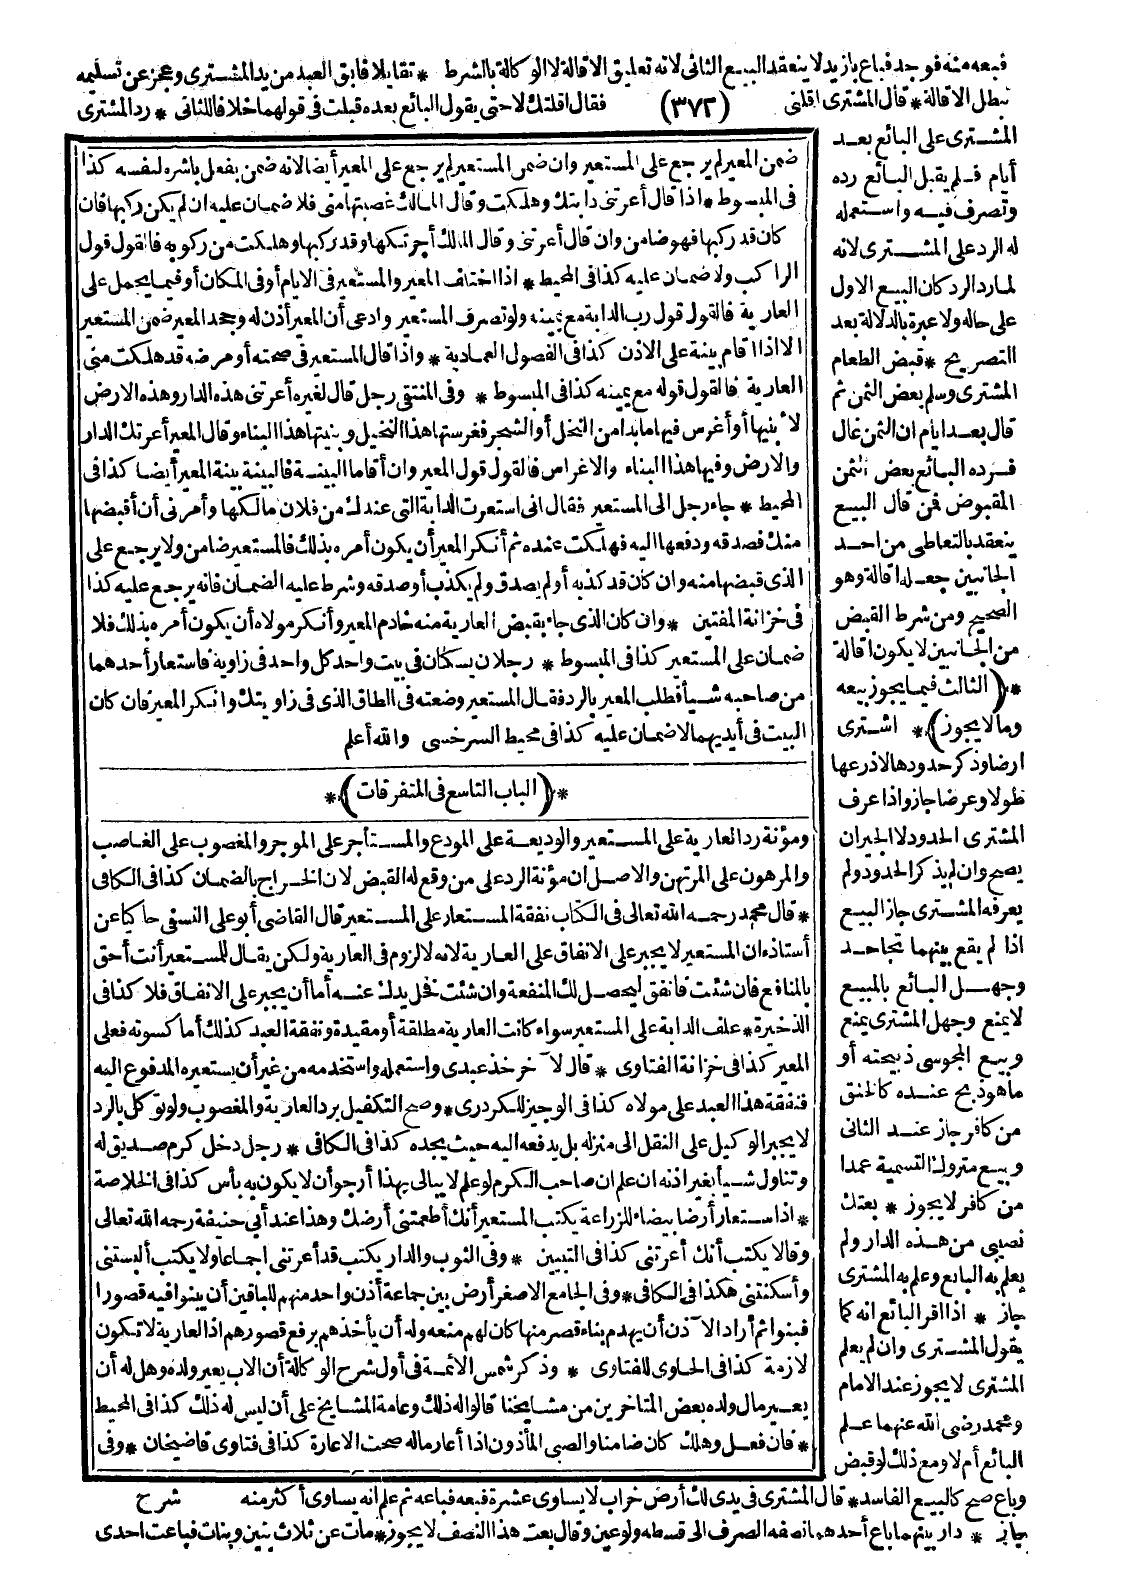 فبعه منه فوجد فباع بازيد لا ينعقد البيع الثانى لانه تعليق الاقالة لا الوكالة بالشرط * تقايلا فابق العبد من يد المشترى وعجز عن تسليمه
تبطل الاقالة * قال المشترى اقلنى (٣٧٢) فقال اقلتك لا حتى يقول البائع بعده قبلت فى قولهما خلافا للثانى * رد المشترى
المشترى على البائع بعد
أيام فلم يقبل البائع رده
وتصرف فيه واستعمله
له الرد على المشترى لانه
لمارد الرد كان البيع الاول
على حاله ولا عبرة بالدلالة بعد
التصريح * قبض الطعام
المشترى وسلم بعض الثمن ثم
قال بعد ايام ان الثمن غال
فرده البائع بعض الثمن
المقبوض فمن قال البيع
ينعقد بالتعاطى من احد
الجانبين جعله اقالة وهو
الصحيح ومن شرط القبض
من الجانبين لا يكون اقالة
* (الثالث فيما يجوز بيعه
وما لا يجوز) * اشترى
ارضا وذكر حدودها لا ذرعها
طولا وعرضا جاز واذا عرف
المشترى الحدود لا الجيران
يصح وان لم يذكر الحدود ولم
يعرفه المشترى جاز البيع
اذا لم يقع بينهما تجاحد
وجهل البائع بالمبيع
لا يمنع وجهل المشترى يمنع
وبيع المجوسى ذبيحته أو
ما هو ذبح عنده كالخنق
من كافر جاز عند الثانى
وبيع متروك التسمية عمدا
من كافر لا يجوز * بعتك
نصيبى من هذه الدار ولم
يعلم به البائع وعلم به المشترى
جاز * اذا اقر البائع انه كما
يقول المشترى وان لم يعلم
المشترى لا يجوز عند الامام
ومحمد رضى الله عنهما علم
البائع أم لا ومع ذلك لو قبض
ضمن المعير لم يرجع على المستعير وان ضمن المستعير لم يرجع على المعير أيضا لانه ضمن بفعل باشره لنفسه كذا
فى المبسوط * اذا قال أعرتنى دابتك وهلكت وقال المالك غصبتها منى فلا ضمان عليه ان لم يكن ركبها فان
كان قد ركبها فهو ضامن وان قال أعرتنى وقال المالك أجرتكها وقد ركبها وهلكت من ركوبه فالقول قول
الراكب ولا ضمان عليه كذا فى المحيط * اذا اختلف المعير والمستعير فى الايام أو فى المكان أو فيما يحمل على
العارية فالقول قول رب الدابة مع يمينه ولو تصرف المستعير وادعى أن المعير أذن له وجحد المعير ضمن المستعير
الا اذا اقام بينة على الاذن كذا فى الفصول العمادية * واذا قال المستعير فى صحته أو مرضه قد هلكت منى
العارية فالقول قوله مع يمينه كذا فى المبسوط * وفى المنتقى رجل قال لغيره أعرتنى هذه الدار وهذه الارض
لأبنيها أو أغرس فيها ما بدا من النخل أو الشجر فغرستها هذا النخيل وبنيتها هذا البناء وقال المعير أعرتك الدار
والارض وفيها هذا البناء والاغراس فالقول قول المعير وان أقاما البينة فالبينة بينة المعير أيضا كذا فى
المحيط * جاء رجل الى المستعير فقال انى استعرت الدابة التى عندك من فلان مالكها وأمرنى أن أقبضها
منك فصدقه ودفعها اليه فهلكت عنده ثم أنكر المعير أن يكون أمره بذلك فالمستعير ضامن ولا يرجع على
الذى قبضها منه وان كان قد كذبه أو لم يصدق ولم يكذب أو صدقه وشرط عليه الضمان فانه يرجع عليه كذا
فى خزانة المفتين * وان كان الذى جاء بقبض العارية منه خادم المعير وأنكر مولاه أن يكون أمره بذلك فلا
ضمان على المستعير كذا فى المبسوط * رجلان يسكنان فى بيت واحد كل واحد فى زاوية فاستعار أحدهما
من صاحبه شيأ فطلب المعير بالرد فقال المستعير وضعته فى الطاق الذى فى زاويتك وانكر المعير فان كان
البيت فى أيديهما لا ضمان عليه كذا فى محيط السرخسى والله أعلم
* (الباب التاسع فى المتفرقات) *
ومؤنة رد العارية على المستعير والوديعة على المودع والمستأجر على الموجر والمغصوب على الغاصب
والمرهون على المرتهن والاصل ان مؤنة الرد على من وقع له القبض لان الخراج بالضمان كذا فى الكافى
* قال محمد رحمه الله تعالى فى الكتاب نفقة المستعار على المستعير قال القاضى أبو على النسفى حاكيا عن
أستاذه ان المستعير لا يجبر على الانفاق على العارية لانه لا لزوم فى العارية ولكن يقال للمستعير أنت أحق
بالمنافع فان شئت فانفق ليحصل لك المنفعة وان شئت فخل يدك عنه أما أن يجبر على الانفاق فلا كذا فى
الذخيرة * علف الدابة على المستعير سواء كانت العارية مطلقة أو مقيدة ونفقة العبد كذلك أما كسوته فعلى
المعير كذا فى خزانة الفتاوى * قال لآخر خذ عبدى واستعمله واستخدمه من غير أن يستعيره المدفوع اليه
فنفقة هذا العبد على مولاه كذا فى الوجيز للكردرى * وصح التكفيل برد العارية والمغصوب ولو توكل بالرد
لا يجبر الوكيل على النقل الى منزله بل يدفعه اليه حيث يجده كذا فى الكافى * رجل دخل كرم صديق له
وتناول شيأ بغير اذنه ان علم ان صاحب الكرم لو علم لا يبالى بهذا أرجو أن لا يكون به بأس كذا فى الخلاصة
* اذا استعار أرضا بيضاء للزراعة يكتب المستعير أنك أطعمتنى أرضك وهذا عند أبى حنيفة رحمه الله تعالى
وقالا يكتب أنك أعرتنى كذا فى التبيين * وفى الثوب والدار يكتب قد أعرتنى اجماعا ولا يكتب ألبستنى
وأسكنتنى هكذا فى الكافى * وفى الجامع الاصغر أرض بين جماعة أذن واحد منهم للباقين أن يبنوا فيه قصورا
فبنوا ثم أراد الآذن أن يهدم بناء قصر منها كان لهم منعه وله أن يأخذهم برفع قصورهم اذ العارية لا تكون
لازمة كذا فى الحاوى للفتاوى * وذكر شمس الائمة فى أول شرح الوكالة أن الاب يعير ولده وهل له أن
يعير مال ولده بعض المتاخرين من مشايخنا قالوا له ذلك وعامة المشايخ على أن ليس له ذلك كذا فى المحيط
* فان فعل وهلك كان ضامنا والصبى المأذون اذا أعار ماله صحت الاعارة كذا فى فتاوى قاضيخان * وفى
وباع صح كالبيع الفاسد * قال المشترى فى يدى لك أرض خراب لا يساوى عشرة فبعه فباعه ثم علم انه يساوى أكثر منه شرح
جاز * دار بينهما باع أحدهما نصفه الصرف الى قسطه ولو عين وقال بعت هذا النصف لا يجوز * مات عن ثلاث بنين وبنات فباعت احدى